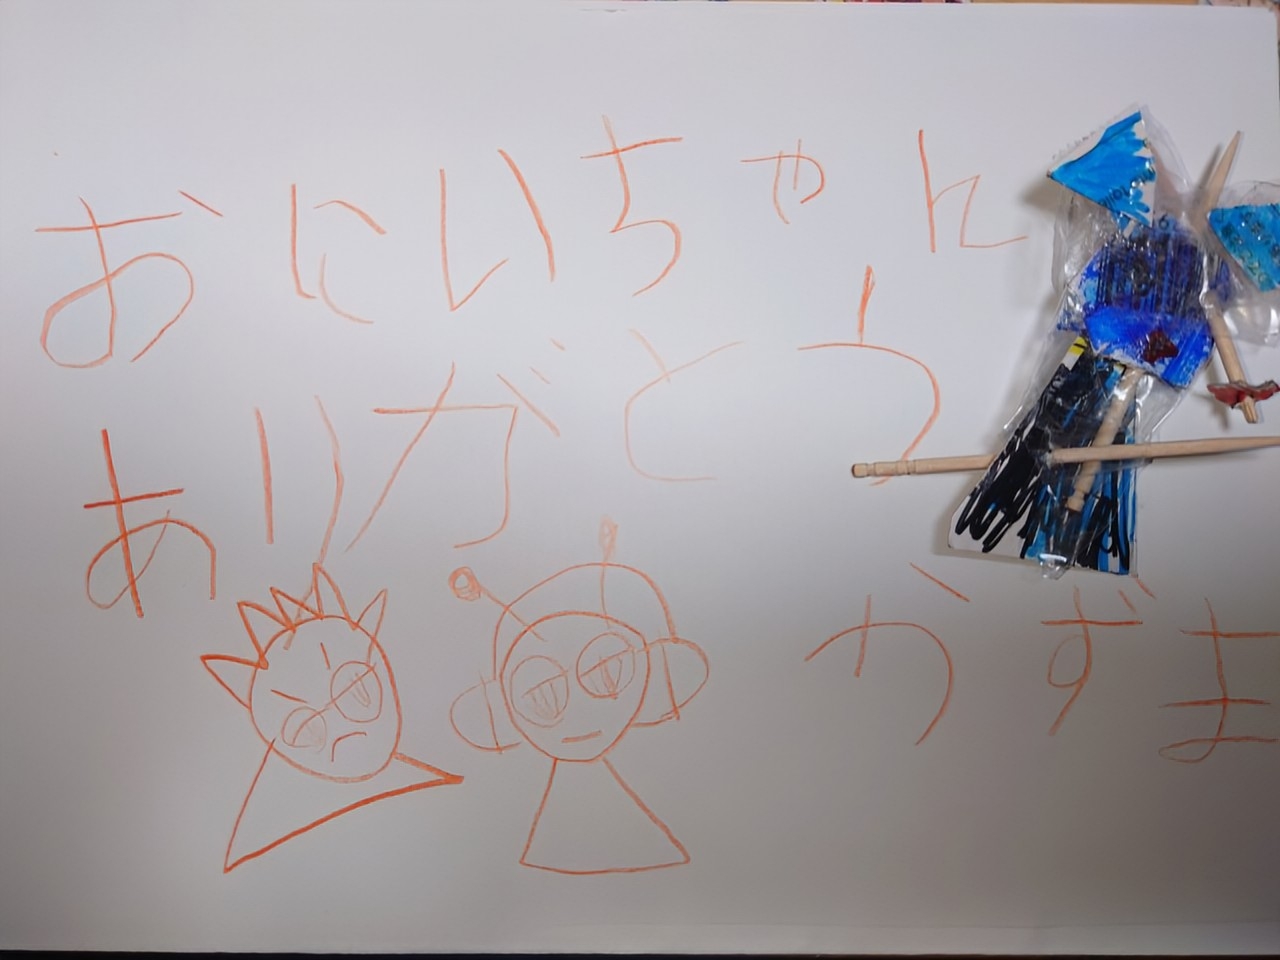 おにいちゃん
ありがとう
かずま